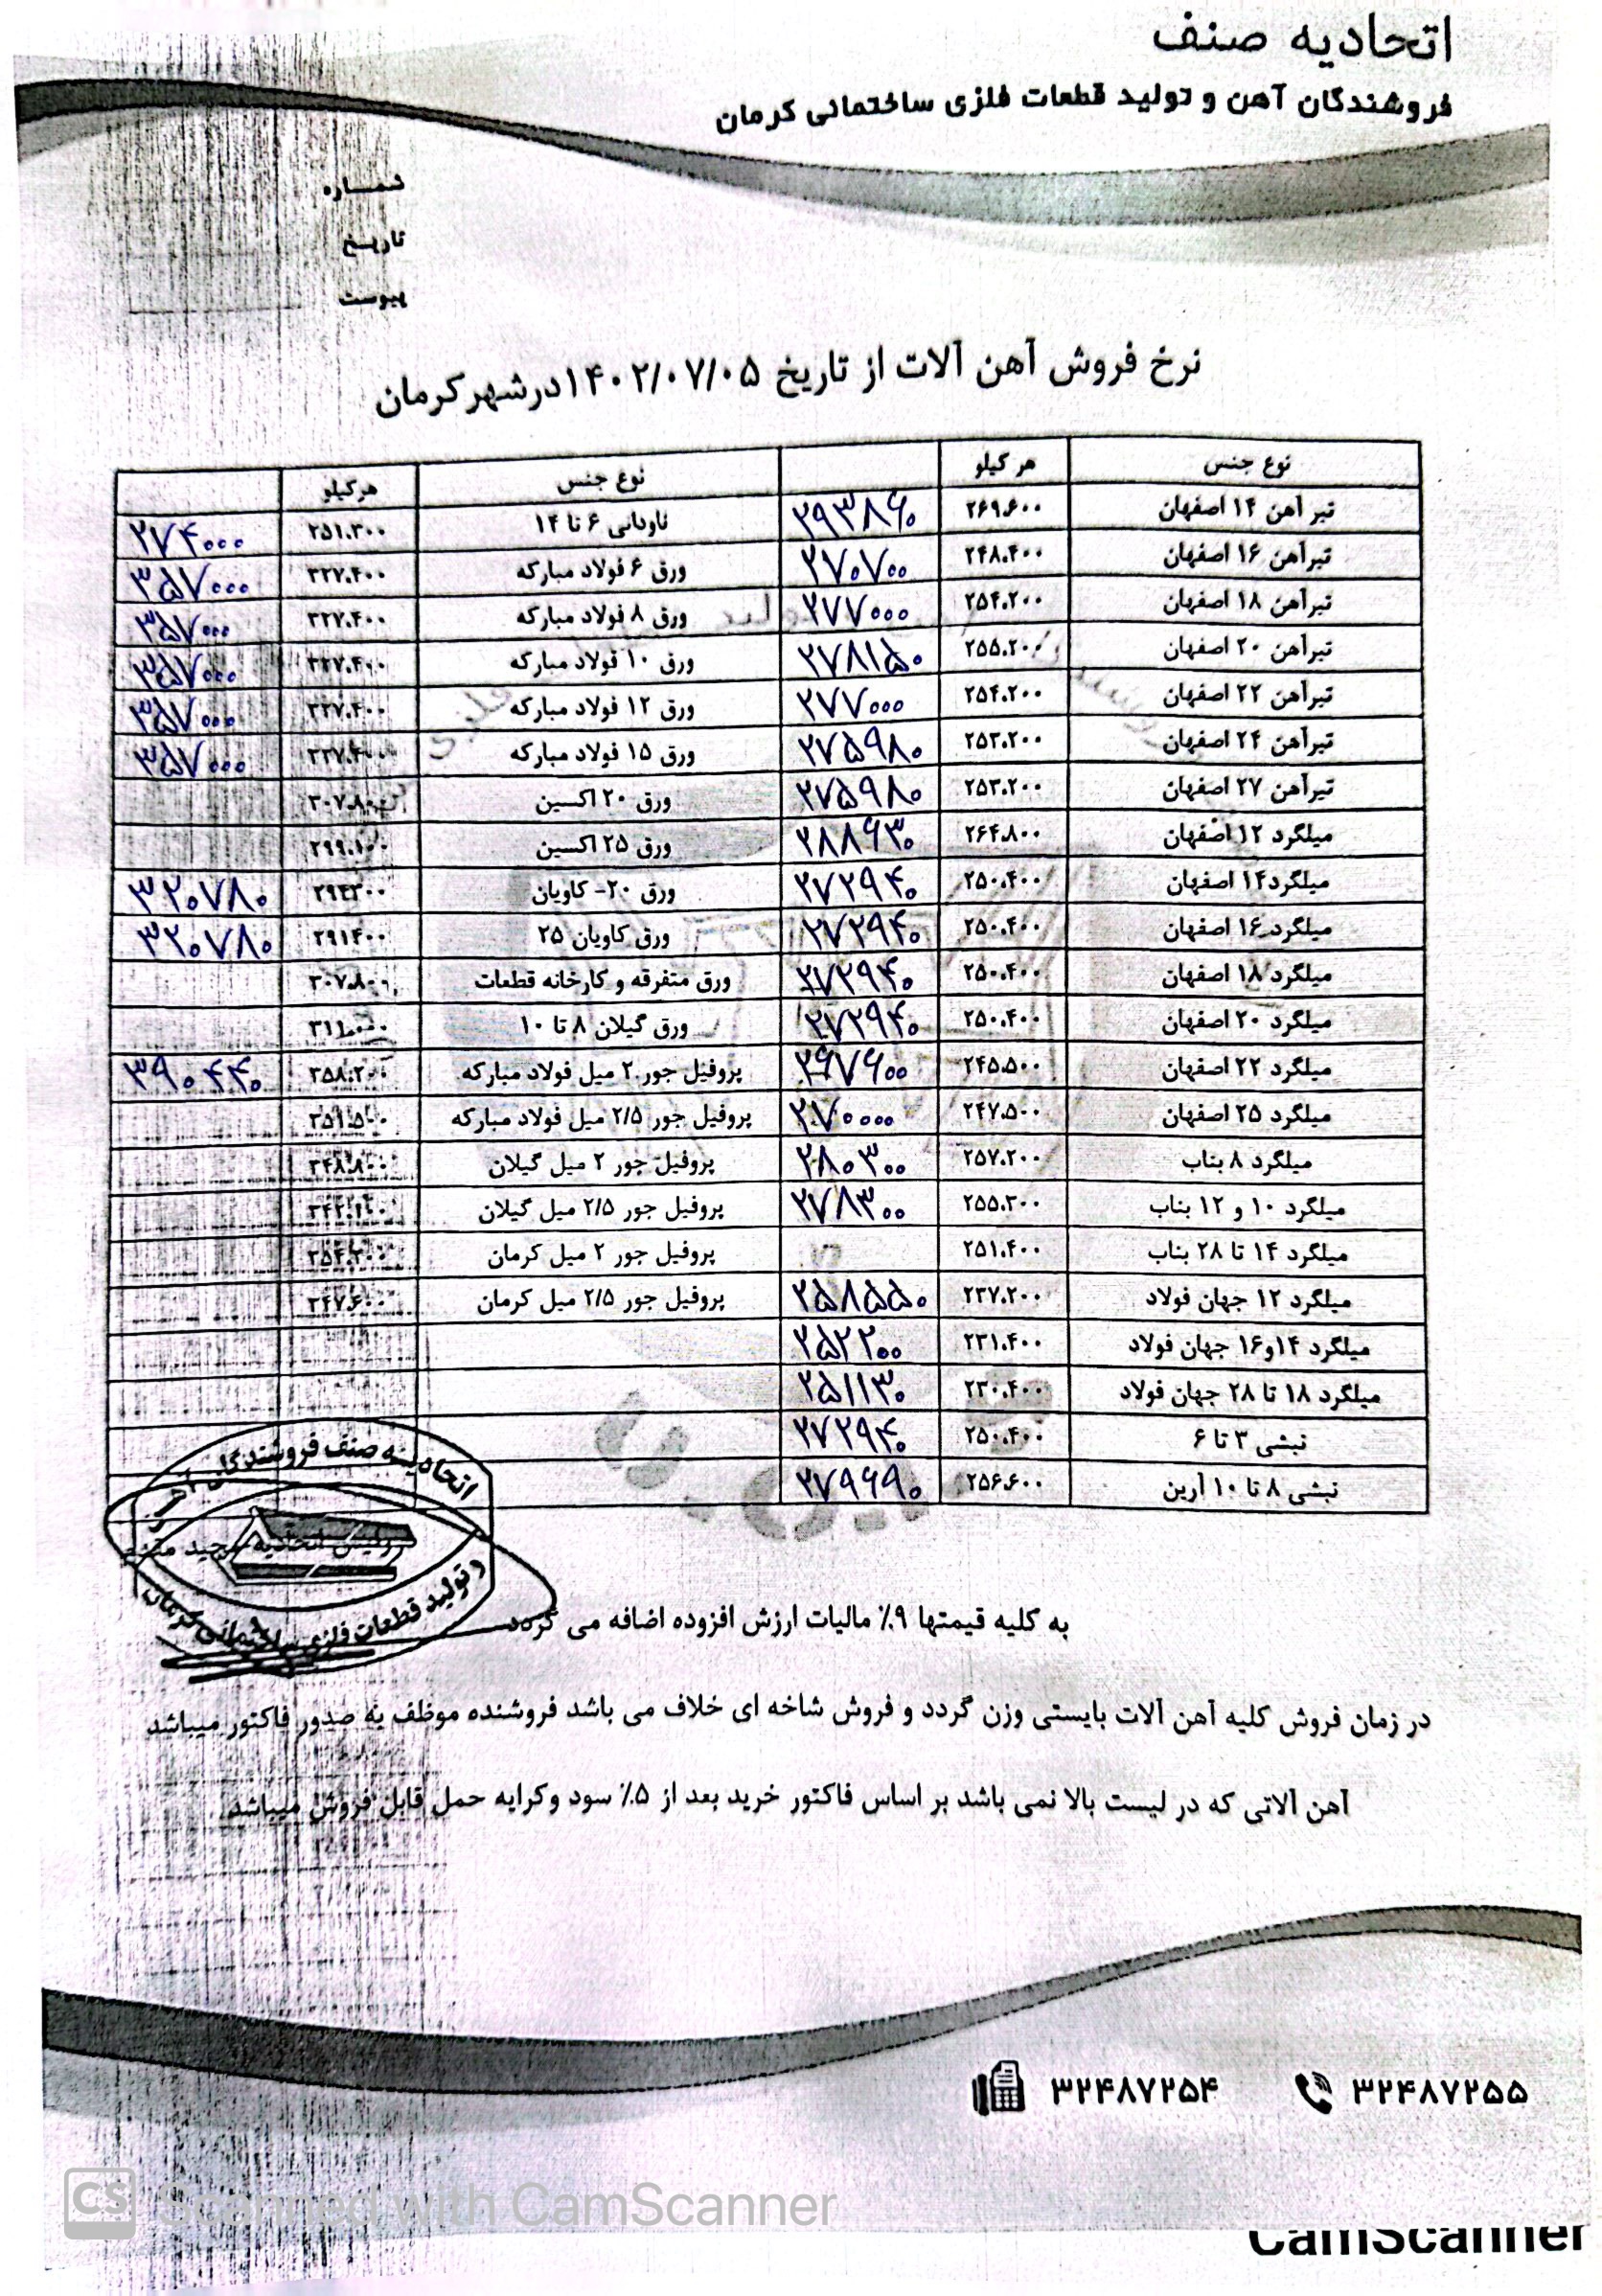 اتحادیه صنف
فروشندگان آهن و تولید قطعات فلزی ساختمانی کرمان
شماره
تاریخ
پیوست
نرخ فروش آهن آلات از تاریخ ۱۴۰۲/۰۷/۰۵ درشهرکرمان
نوع جنس هر کیلو نوع جنس هرکیلو
تیر آهن ۱۴ اصفهان ۲۶۹.۶۰۰ ۲۹۳۸۶۰ ناودانی ۶ تا ۱۴ ۲۵۱.۳۰۰ ۲۷۴۰۰۰
تیرآهن ۱۶ اصفهان ۲۴۸.۴۰۰ ۲۷۰۷۰۰ ورق ۶ فولاد مبارکه ۳۲۷.۴۰۰ ۳۵۷۰۰۰
تیرآهن ۱۸ اصفهان ۲۵۴.۲۰۰ ۲۷۷۰۰۰ ورق ۸ فولاد مبارکه ۳۲۷.۴۰۰ ۳۵۷۰۰۰
تیرآهن ۲۰ اصفهان ۲۵۵.۲۰۰ ۲۷۸۱۵۰ ورق ۱۰ فولاد مبارکه ۳۲۷.۴۰۰ ۳۵۷۰۰۰
تیرآهن ۲۲ اصفهان ۲۵۴.۲۰۰ ۲۷۷۰۰۰ ورق ۱۲ فولاد مبارکه ۳۲۷.۴۰۰ ۳۵۷۰۰۰
تیرآهن ۲۴ اصفهان ۲۵۳.۲۰۰ ۲۷۵۹۸۰ ورق ۱۵ فولاد مبارکه ۳۲۷.۴۰۰ ۳۵۷۰۰۰
تیرآهن ۲۷ اصفهان ۲۵۳.۲۰۰ ۲۷۵۹۸۰ ورق ۲۰ اکسین ۳۰۷.۸۰۰
میلگرد ۱۲ اصفهان ۲۶۴.۸۰۰ ۲۸۸۶۳۰ ورق ۲۵ اکسین
میلگرد۱۴ اصفهان ۲۵۰.۴۰۰ ۲۷۲۹۴۰ ورق ۲۰- کاویان ۳۲۰۷۸۰
میلگرد ۱۶ اصفهان ۲۵۰.۴۰۰ ۲۷۲۹۴۰ ورق کاویان ۲۵ ۳۲۰۷۸۰
میلگرد ۱۸ اصفهان ۲۵۰.۴۰۰ ۲۷۲۹۴۰ ورق متفرقه و کارخانه قطعات ۳۰۷.۸۰۰
میلگرد ۲۰ اصفهان ۲۵۰.۴۰۰ ۲۷۲۹۴۰ ورق گیلان ۸ تا ۱۰ ۳۱۱.۰۰۰
میلگرد ۲۲ اصفهان ۲۴۵.۵۰۰ ۲۶۷۶۰۰ پروفیل جور ۲ میل فولاد مبارکه ۳۵۸.۲۰۰ ۳۹۰۴۴۰
میلگرد ۲۵ اصفهان ۲۴۷.۵۰۰ ۲۷۰۰۰۰ پروفیل جور ۲/۵ میل فولاد مبارکه ۳۵۱.۵۰۰
میلگرد ۸ بناب ۲۵۷.۲۰۰ ۲۸۰۳۰۰ پروفیل جور ۲ میل گیلان ۳۴۸.۸۰۰
میلگرد ۱۰ و ۱۲ بناب ۲۵۵.۳۰۰ ۲۷۸۳۰۰ پروفیل جور ۲/۵ میل گیلان
میلگرد ۱۴ تا ۲۸ بناب ۲۵۱.۴۰۰ پروفیل جور ۲ میل کرمان
میلگرد ۱۲ جهان فولاد ۲۳۷.۲۰۰ ۲۵۸۵۵۰ پروفیل جور ۲/۵ میل کرمان ۳۴۷.۶۰۰
میلگرد ۱۴و۱۶ جهان فولاد ۲۳۱.۴۰۰ ۲۵۲۲۰۰
میلگرد ۱۸ تا ۲۸ جهان فولاد ۲۳۰.۴۰۰ ۲۵۱۱۳۰
نبشی ۳ تا ۶ ۲۵۰.۴۰۰ ۲۷۲۹۴۰
نبشی ۸ تا ۱۰ آرین ۲۵۶.۶۰۰ ۲۷۹۶۹۰
اتحادیه صنف فروشندگان آهن
رئیس اتحادیه مجید
و تولید قطعات فلزی ساختمانی کرمان
به کلیه قیمتها ۹٪ مالیات ارزش افزوده اضافه می گردد
در زمان فروش کلیه آهن آلات بایستی وزن گردد و فروش شاخه ای خلاف می باشد فروشنده موظف به صدور فاکتور میباشد
آهن آلاتی که در لیست بالا نمی باشد بر اساس فاکتور خرید بعد از ۵٪ سود وکرایه حمل قابل فروش میباشد
۳۲۴۸۷۲۵۵ ۳۲۴۸۷۲۵۴
CS Scanned with CamScanner
CamScanner